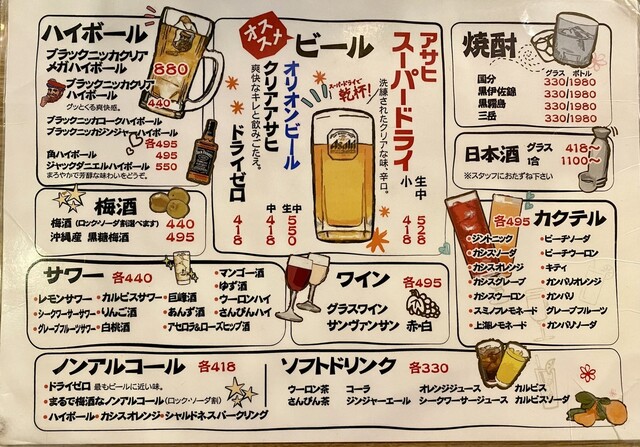 ハイボール
ブラックニッカクリア
メガハイボール 880
ブラックニッカクリア
ハイボール 440
グッとくる爽快感。
ブラックニッカコークハイボール
ブラックニッカジンジャーハイボール
各495
角ハイボール 495
ジャックダニエルハイボール 550
まろやかで芳醇な味わいをどうぞ。
オススメ
ビール
アサヒ
スーパードライ
洗練されたクリアな味、辛口。
生中 528
小 418
スーパードライで
乾杯!
Asahi
オリオンビール
生中 550
クリアアサヒ
爽快なキレと飲みごたえ。
中 418
ドライゼロ 418
焼酎
グラス ボトル
国分 330/1980
黒伊佐錦 330/1980
黒霧島 330/1980
三岳 330/1980
日本酒
グラス 418〜
1合 1100〜
※スタッフにおたずね下さい
梅酒
梅酒(ロック・ソーダ割選べます) 440
沖縄産 黒糖梅酒 495
カクテル 各495
・ジントニック
・カシスソーダ
・カシスオレンジ
・カシスグレープ
・カシスウーロン
・スミノフレモネード
・上海レモネード
・ピーチソーダ
・ピーチウーロン
・キティ
・カンパリオレンジ
・カンパリ
・グレープフルーツ
・カンパリソーダ
サワー 各440
・レモンサワー
・シークワーサーサワー
・グレープフルーツサワー
・カルピスサワー
・りんご酒
・白桃酒
・巨峰酒
・あんず酒
・アセロラ&ローズヒップ酒
・マンゴー酒
・ゆず酒
・ウーロンハイ
・さんぴんハイ
ワイン 各495
グラスワイン
サンヴァンサン 赤・白
ノンアルコール 各418
・ドライゼロ 最もビールに近い味。
・まるで梅酒なノンアルコール(ロック・ソーダ割)
・ハイボール・カシスオレンジ・シャルドネスパークリング
ソフトドリンク 各330
ウーロン茶 コーラ オレンジジュース カルピス
さんぴん茶 ジンジャーエール シークワーサージュース カルピスソーダ